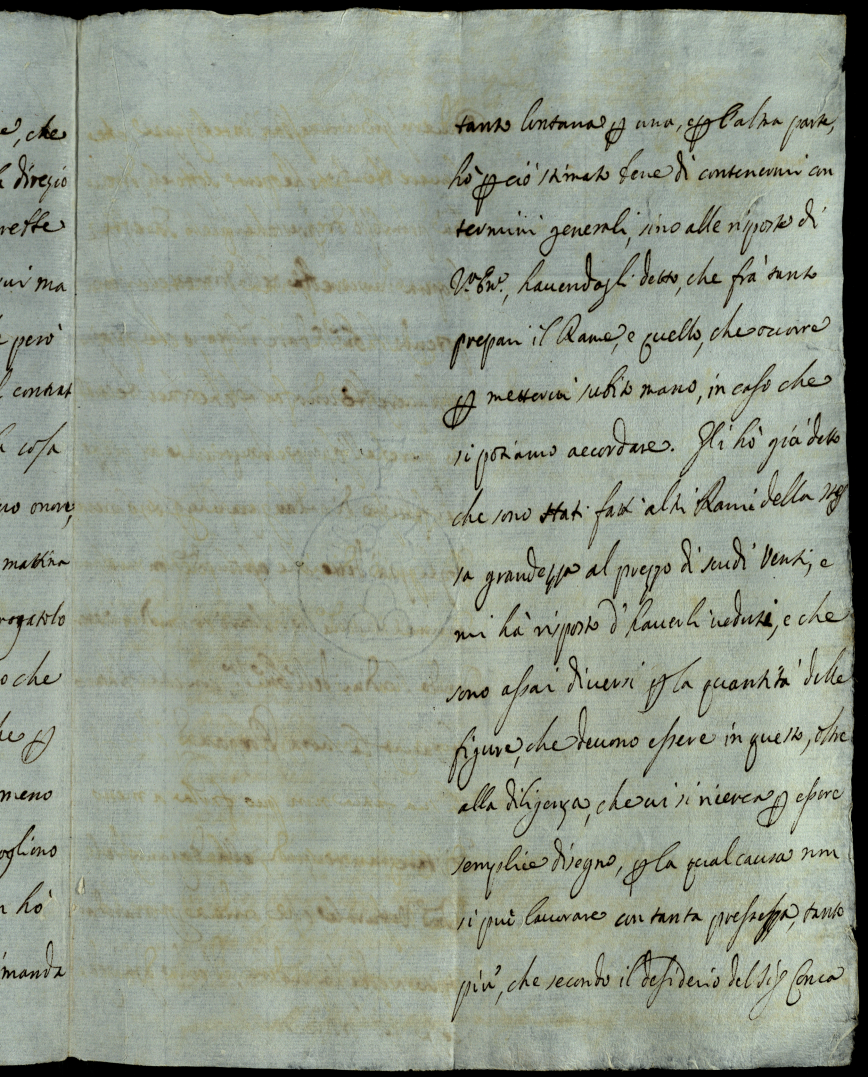 e, che
diregio
rebbe
ui ma
però
l contrat
cosa
onore,
mattina
rogatolo
o che
he ꝑ
meno
ogliono
n hò
imanda
tanto lontana ꝑ una, e ꝑ l'altra parte,
hò ꝑ ciò stimato bene di contenermi con
termini generali, sino alle risposte di
V.ª Em.ª, havendogli detto, che frà tanto
prepari il Rame, e quello, che occorre
ꝑ mettervi subito mano, in caso che
si possiamo accordare. Gli hò già detto
che sono stati fatti altri Rami della stes
sa grandezza al prezzo di scudi Venti, e
mi hà risposto d'haverli veduti, e che
sono assai diversi ꝑ la quantità delle
figure, che devono essere in questo, oltre
alla diligenza, che vi si ricerca ꝑ essere
semplice disegno, ꝑ la qual causa non
si può lavorare con tanta prestezza, tanto
più, che secondo il desiderio del Sig.r Conca